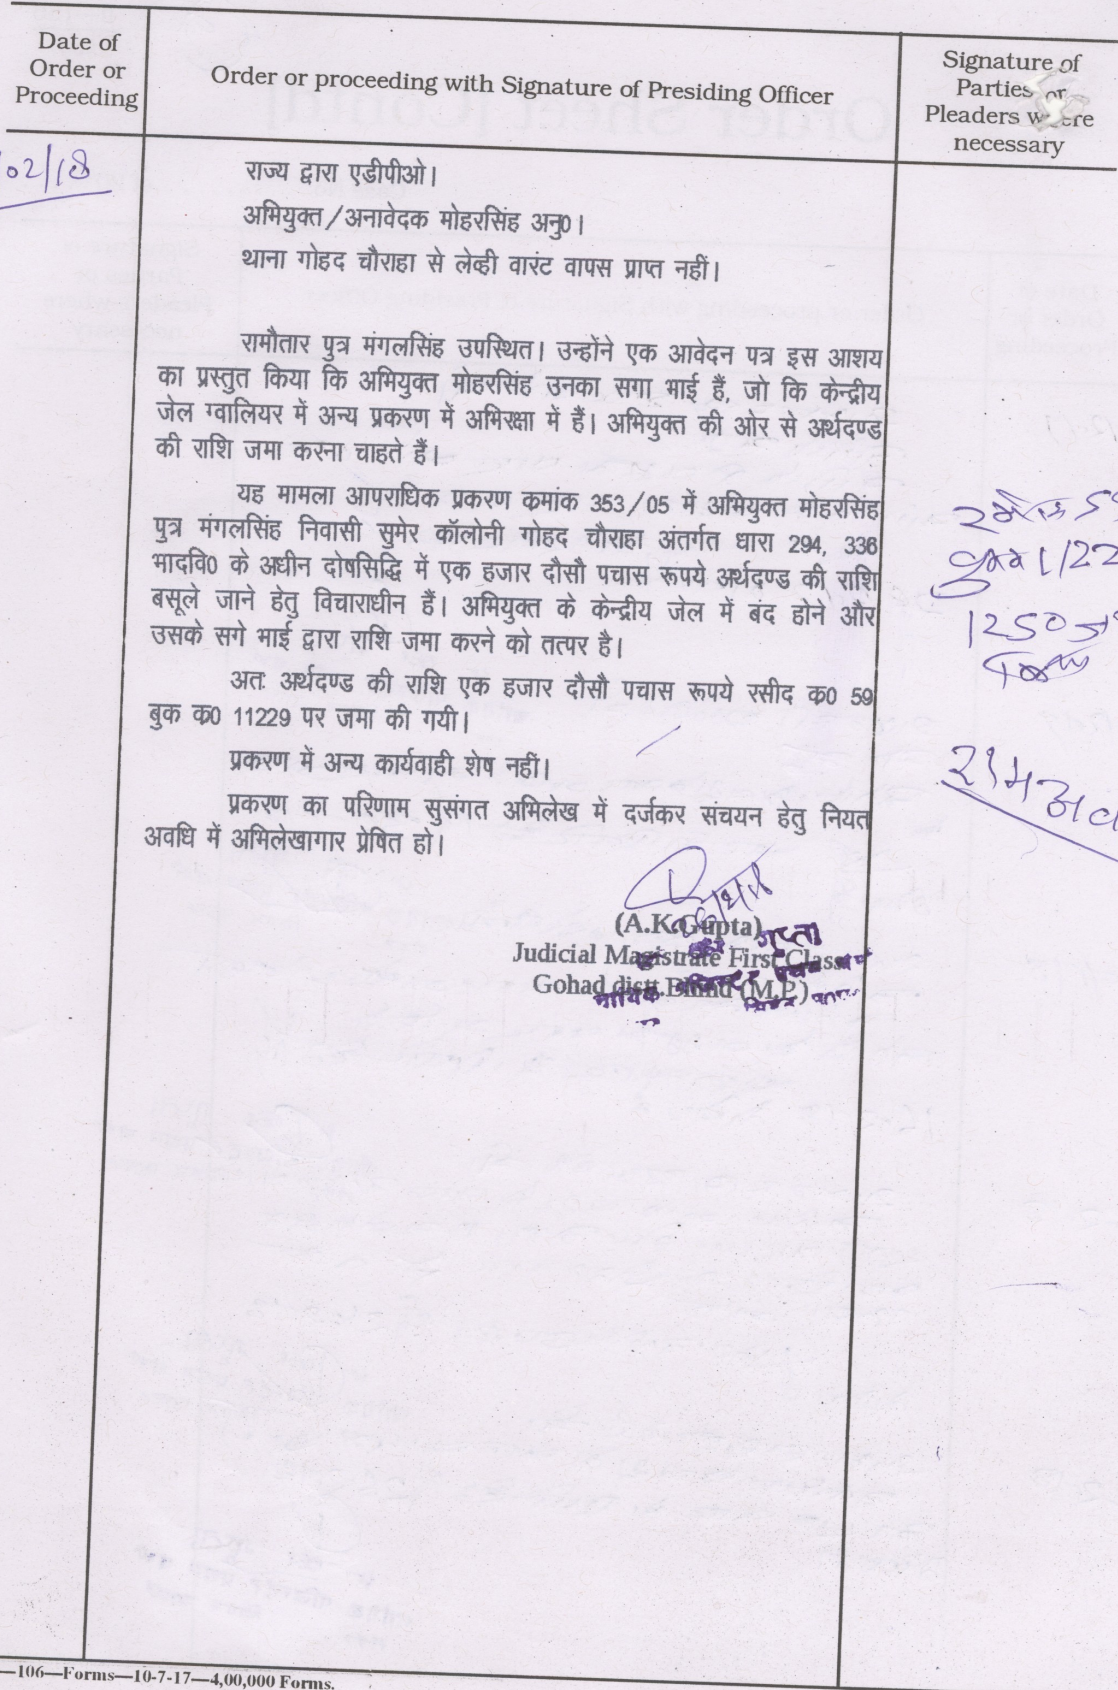 Date of
Order or
Proceeding
Order or proceeding with Signature of Presiding Officer
Signature of
Parties or
Pleaders where
necessary
02/18
राज्य द्वारा एडीपीओ।
अभियुक्त/अनावेदक मोहरसिंह अनु0।
थाना गोहद चौराहा से लेव्ही वारंट वापस प्राप्त नहीं।
रामौतार पुत्र मंगलसिंह उपस्थित। उन्होंने एक आवेदन पत्र इस आशय
का प्रस्तुत किया कि अभियुक्त मोहरसिंह उनका सगा भाई हैं, जो कि केन्द्रीय
जेल ग्वालियर में अन्य प्रकरण में अभिरक्षा में हैं। अभियुक्त की ओर से अर्थदण्ड
की राशि जमा करना चाहते हैं।
यह मामला आपराधिक प्रकरण कमांक 353/05 में अभियुक्त मोहरसिंह
पुत्र मंगलसिंह निवासी सुमेर कॉलोनी गोहद चौराहा अंतर्गत धारा 294, 336
भादवि0 के अधीन दोषसिद्धि में एक हजार दौसौ पचास रूपये अर्थदण्ड की राशि
बसूले जाने हेतु विचाराधीन हैं। अभियुक्त के केन्द्रीय जेल में बंद होने और
उसके सगे भाई द्वारा राशि जमा करने को तत्पर है।
अतः अर्थदण्ड की राशि एक हजार दौसौ पचास रूपये रसीद क0 59
बुक क0 11229 पर जमा की गयी।
प्रकरण में अन्य कार्यवाही शेष नहीं।
प्रकरण का परिणाम सुसंगत अभिलेख में दर्जकर संचयन हेतु नियत
अवधि में अभिलेखागार प्रेषित हो।
1250
(A.K.Gupta)
गुप्ता
Judicial Magistrate First Class
Gohad distt.Bhind (M.P.)
—106—Forms—10-7-17—4,00,000 Forms.